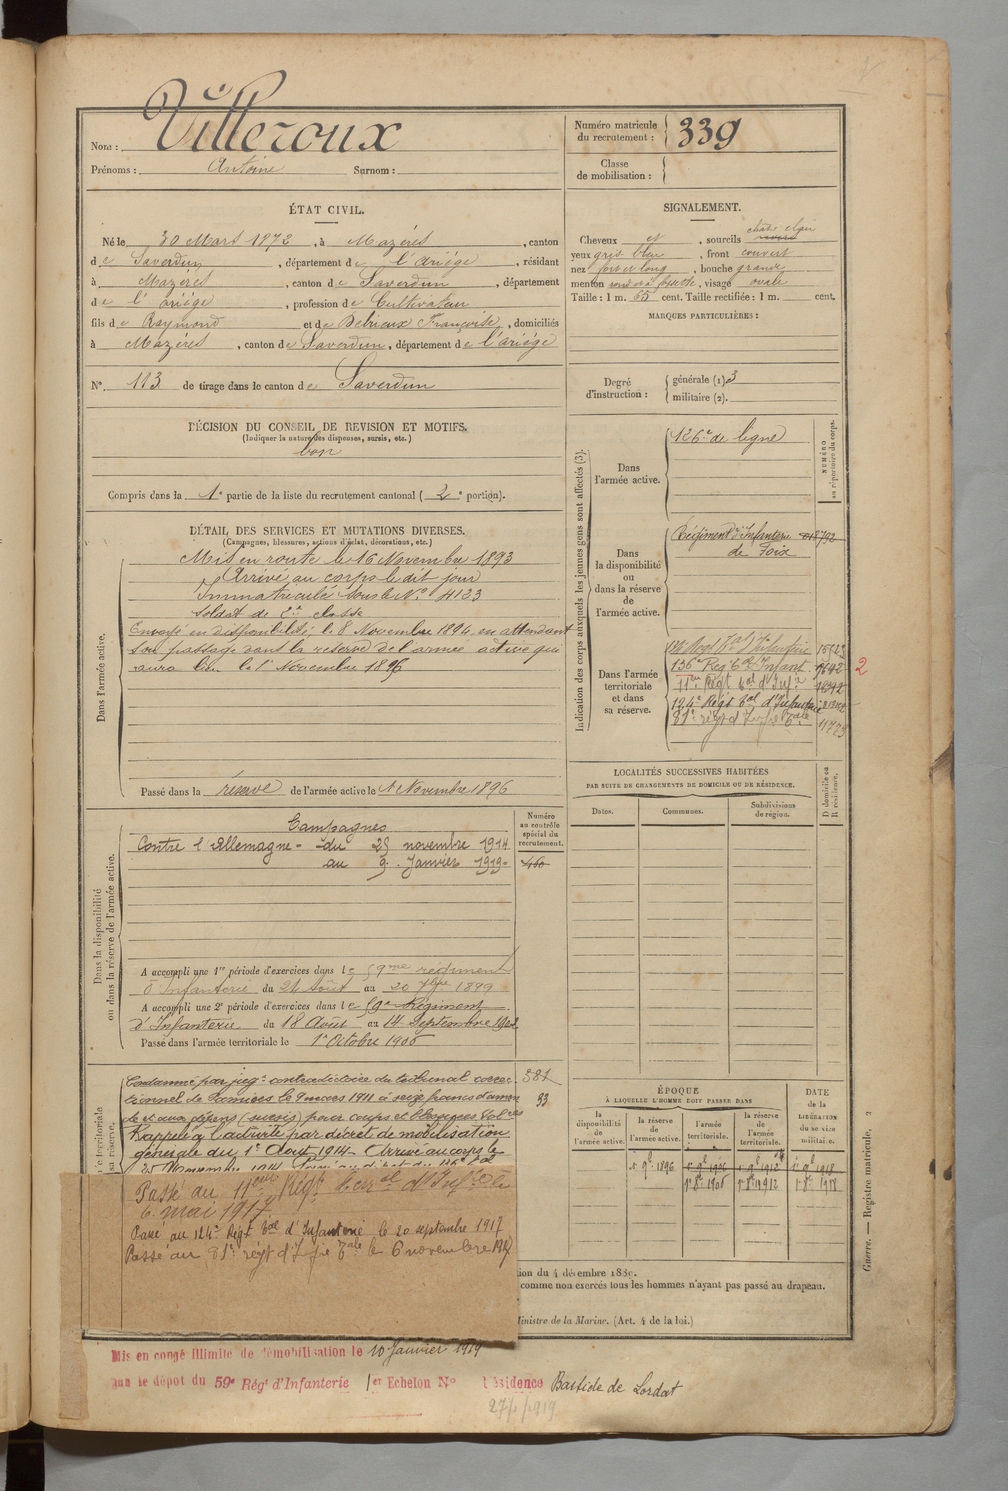 Nom : Villeroux
Prénoms : Antoine Surnom :
Numéro matricule du recrutement : 339
Classe de mobilisation :
ÉTAT CIVIL.
Né le 30 Mars 1872, à Mazéres, canton
de Saverdun, département de l'Ariége, résidant
à Mazéres, canton de Saverdun, département
de l'ariége, profession de Cultivateur
fils de Raymond et de Françoise, domiciliés
à Mazéres, canton de Saverdun, département de l'ariége
N° 113 de tirage dans le canton de Saverdun
DÉCISION DU CONSEIL DE REVISION ET MOTIFS.
(Indiquer la nature des dispenses, sursis, etc.)
bon
Compris dans la 1e partie de la liste du recrutement cantonal (2e portion).
DÉTAIL DES SERVICES ET MUTATIONS DIVERSES.
(Campagnes, blessures, actions d'éclat, décorations, etc.)
Dans l'armée active.
Mis en route le 16 Novembre 1893
Arrivé au corps le dit jour
Immatriculé sous le N° 4123
Soldat de 2e classe
Envoyé en disponibilité, le 8 Novembre 1894 en attendant
son passage dans la réserve de l'armée active qui
aura lieu le 1 Novembre 1896
Passé dans la réserve de l'armée active le 1 Novembre 1896
Dans la disponibilité
ou dans la réserve de l'armée active.
Numéro
au contrôle
spécial du
recrutement.
460
Campagnes
Contre l'Allemagne - du 25 novembre 1914
au 9 Janvier 1919
A accompli une 1re période d'exercices dans le 59me régiment
d'Infanterie du 21 Août au 20 1899
A accompli une 2e période d'exercices dans le 59e Régiment
d'Infanterie du 18 Août au 14 Septembre
Passé dans l'armée territoriale le 1er Octobre 1906
Condamné par jugt contradictoire du tribunal correc-
tionnel de Pamiers le 9 mars 1911 à seize francs d'amen-
de et aux dépens (sursis) pour coups et blessures
Rappelé à l'activité par décret de mobilisation
générale du 1er Août 1914 - Arrivé au corps le
25 Novembre 1914
581
93
Passé au 11eme Régt terral d'Infie le
6 mai 1917
Passé au 124e Régt tal d'Infanterie le 20 septembre 1917
Passé au 81e régt d'Infie tale le 6 novembre 1917
Mis en congé illimité de démobilisation le 10 Janvier 1919
par le dépôt du 59e Régt d'Infanterie 1er Echelon N° Résidence Bastide de Lordat
SIGNALEMENT.
Cheveux et, sourcils chât. clair
yeux gris bleu, front couvert
nez fort et long, bouche grande
menton rond à fossette, visage ovale
Taille : 1 m. 65 cent. Taille rectifiée : 1 m. cent.
MARQUES PARTICULIÈRES :
Degré d'instruction : générale (1) 3
militaire (2).
Indication des corps auxquels les jeunes gens sont affectés (3).
NUMÉRO
au répertoire du corps.
Dans
l'armée active.
126e de ligne
Dans
la disponibilité
ou
dans la réserve
de
l'armée active.
Régiment d'Infanterie
de Foix
Dans l'armée
territoriale
et dans
sa réserve.
136e Reg tal Infant. 2
11me Régt tal d'Infie
124e Régt tal d'Infanterie
81e régt d'Infie tale
LOCALITÉS SUCCESSIVES HABITÉES
PAR SUITE DE CHANGEMENTS DE DOMICILE OU DE RÉSIDENCE.
Dates. Communes. Subdivisions de région. D domicile ou R résidence.
ÉPOQUE
À LAQUELLE L'HOMME DOIT PASSER DANS
DATE
de la
LIBÉRATION
du service
militaire.
la disponibilité de l'armée active.
la réserve de l'armée active.
l'armée territoriale.
la réserve de l'armée territoriale.
1er 9b 1896 1er 9b 1906 1er 9b 1912 1er 9b 1918
1er 8b 1906 1er 8b 1912 1er 8b 1918
tion du 4 décembre 1889.
comme non exercés tous les hommes n'ayant pas passé au drapeau.
Ministre de la Marine. (Art. 4 de la loi.)
Guerre. — Registre matricule, 2